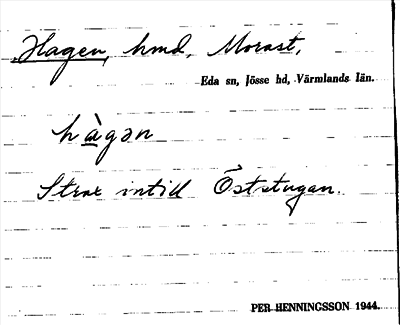 Hagen, hmd, Morast,
Eda sn, Jösse hd, Värmlands län.
hàgən
Strax intill Öststugan.
PER HENNINGSSON 1944.